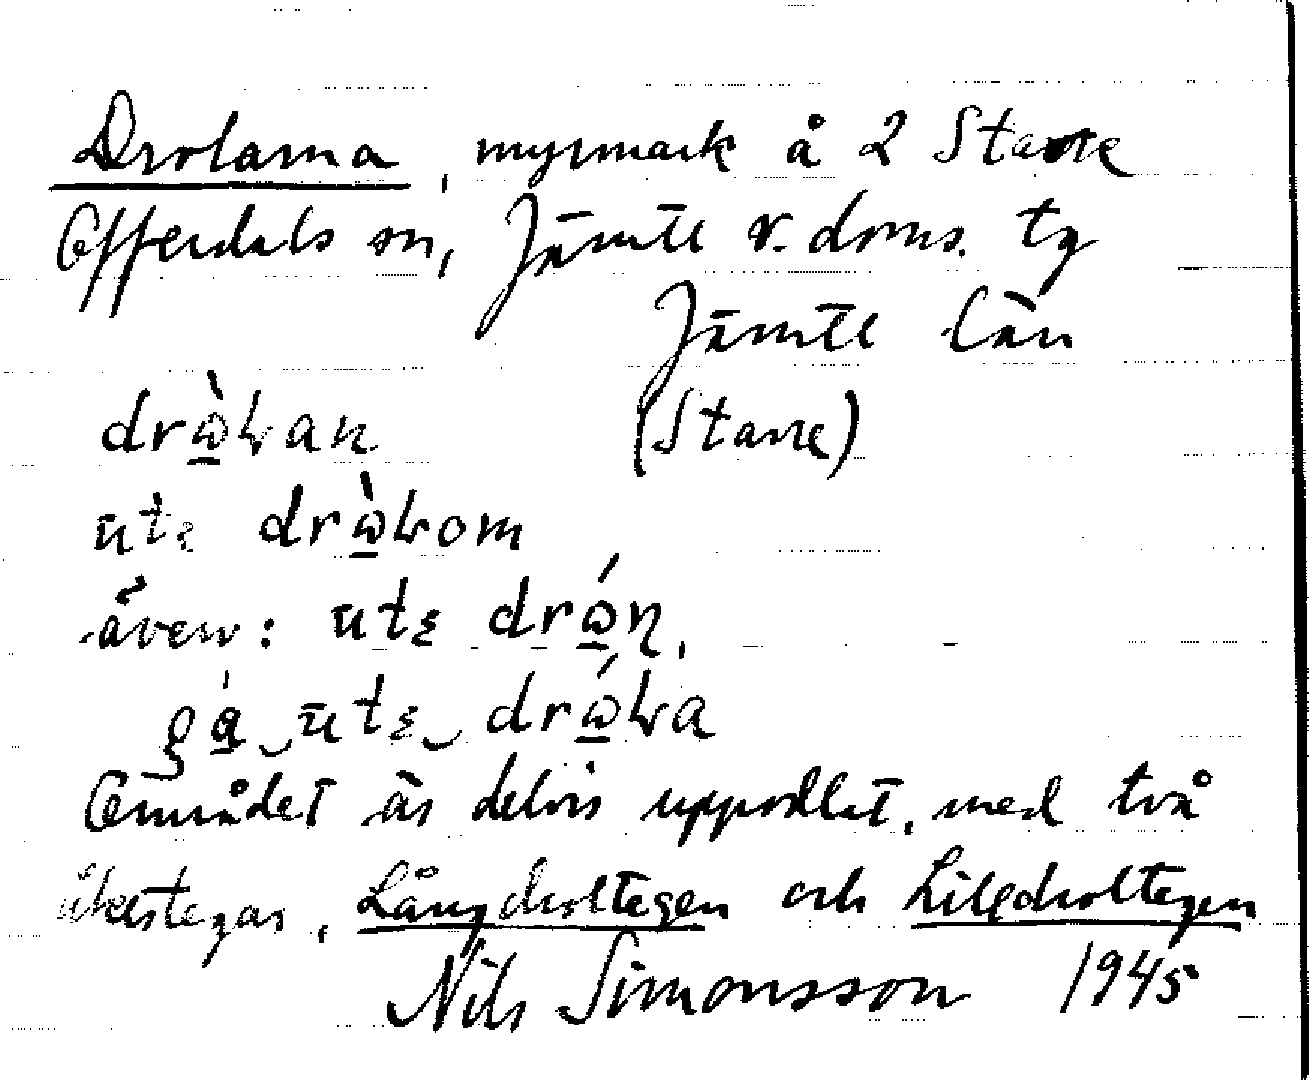 Drolarna, myrmark å 2 Stavre
Offerdals sn, Jämtl v. doms. tg
Jämtl län
(Stavre)
ute
även: ute
gå ute
Området är delvis uppodlat, med två
åkertegar, Långdroltegen och Lilldroltegen
Nils Simonsson 1945